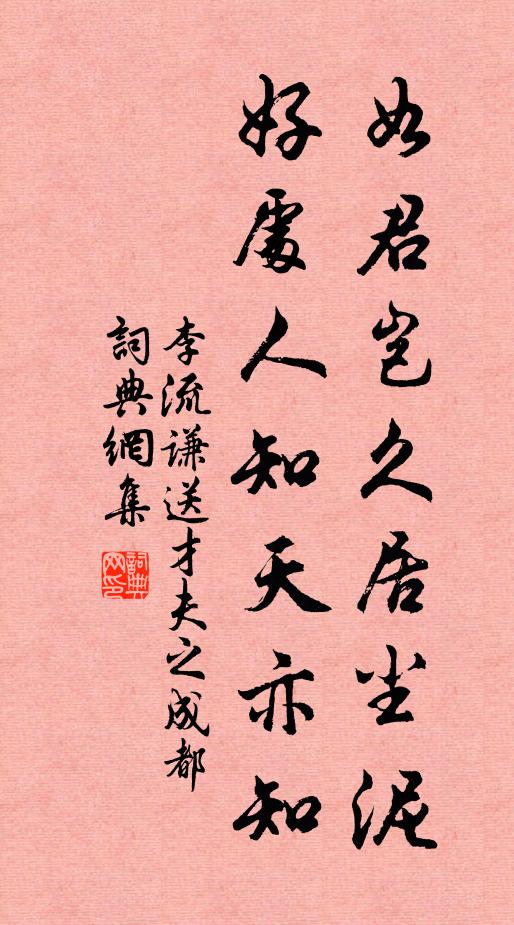 如君岂久居尘泥
好處人知天亦知
李流谦送才夫之成都
詞典網集
詞典網印